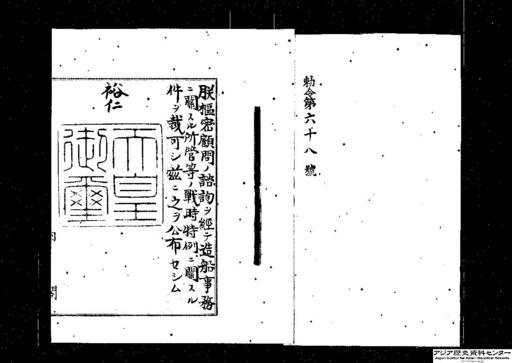 勅令第六十八號
朕樞密顧問ノ諮詢ヲ經テ造船事務
ニ關スル所管等ノ戰時特例ニ關スル
件ヲ裁可シ茲ニ之ヲ公布セシム
裕仁
天皇
御璽
アジア歴史資料センター
Japan Center for Asian Historical Records